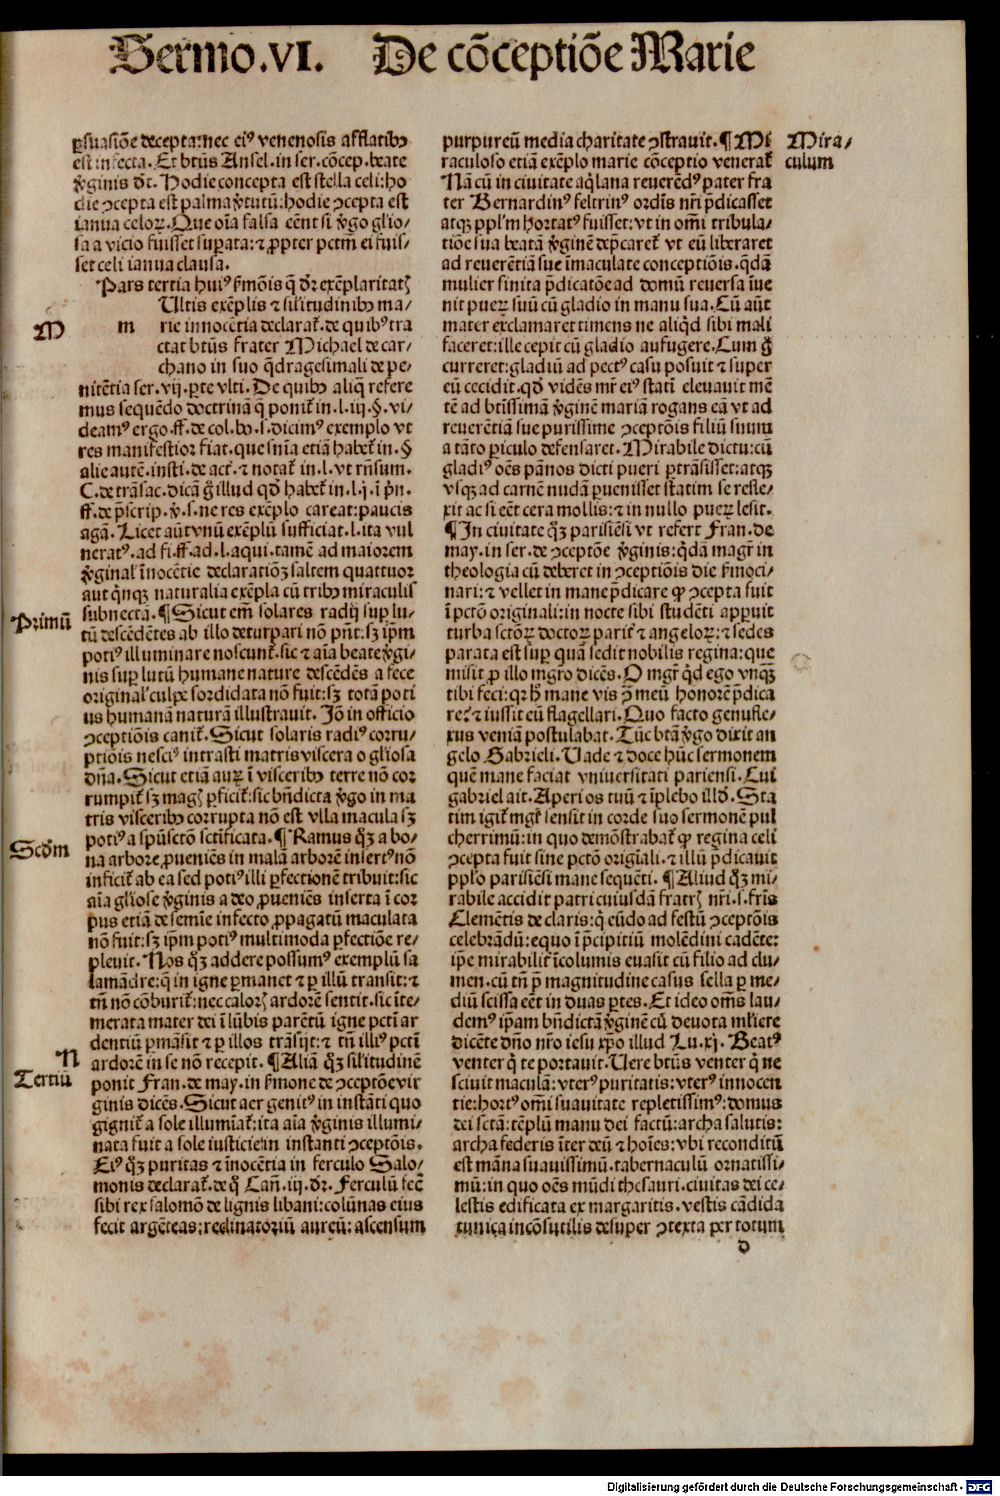 Sermo.VI. De cõceptiõe Marie
ꝑsuasiõe decepta:nec eiꝰ venenosis afflatibꝫ
est infecta. Et btũs Ansel. in ser. cõcep. beate
ꝟginis dt̃. Hodie concepta est stella celi:ho
die ↄcepta est palma ꝟtutũ:hodie ↄcepta est
ianua celoꝝ. Que oĩa falsa eẽnt si ꝟgo gl̃io/
sa a vicio fuisset suꝑata:⁊ ꝓpter pctm̃ ei fuis/
set celi ianua clausa.
Pars tertia huiꝰ ẜmõis q̃ dr̃ exẽplaritatꝭ
M
m
Ultis exẽplis ⁊ sil̃itudinibꝫ ma/
rie innocẽtia declarat̃. de quibꝰ tra
ctat btũs frater Michael de car/
chano in suo q̃dragesimali de pe/
nitẽtia ser. vij. ꝑte vlti. De quibꝫ aliq̃ refere
mus sequẽdo doctrinã q̃ ponit̃ in. l. iij. §. vi/
deamꝰ ergo. ff. de col. bo. s. dicimꝰ exemplo vt
res manifestior fiat. que sñia etiã habet̃ in. §
alie autẽ. insti. de act̃. ⁊ notat̃ in. l. vt rñsum.
C. de trãsac. dicã g̃ illud qđ habet̃ in. l. j. ĩ pñ.
ff. de p̃scrip. ꝟ. s. ne res exẽplo careat: paucis
agã. Licet aũt vnũ exẽplũ sufficiat. l. ita vul
neratꝰ. ad fi. ff. ad. l. aqui. tamẽ ad maiorem
ꝟginal̃ ĩnocẽtie declaratiõꝫ saltem quattuor
aut q̃nqꝫ naturalia exẽpla cũ tribꝰ miraculis
Primũ
subnectã. ¶ Sicut em̃ solares radij suꝑ lu/
tũ descẽdẽtes ab illo deturpari nõ pñt: sꝫ ip̃m
potiꝰ illuminare noscunt̃. sic ⁊ aĩa beate ꝟgi/
nis suꝑ lutũ humane nature descẽdẽs a fece
original̃ culpe sordidata nõ fuit: sꝫ totã poti
us humanã naturã illustrauit. Jõ in officio
ↄceptiõis canit̃. Sicut solaris radiꝰ corru/
ptiõis nesciꝰ intrasti matris viscera o gl̃iosa
dñа. Sicut etiã auꝝ ĩ visceribꝫ terre nõ cor
rumpit̃ sꝫ magꝭ ꝑficit̃: sic bñdicta ꝟgo in ma
tris visceribꝫ corrupta nõ est vlla macula sꝫ
potiꝰ a spũsctõ sctĩficata. ¶ Ramus qꝫ a bo/
Scđm
na arbore ꝓueniẽs in malã arborẽ insertꝰ nõ
inficit̃ ab ea sed potiꝰ illi ꝑfectionẽ tribuit: sic
aĩa gl̃iose ꝟginis a deo ꝓueniẽs inserta ĩ cor
pus etiã de semĩe infecto ꝓpagatũ maculata
nõ fuit: sꝫ ip̃m potiꝰ multimoda ꝑfectiõe re/
pleuit. Nos qꝫ addere possumꝰ exemplũ sa
lamãdre: q̃ in igne ꝑmanet ⁊ ꝑ illũ transit: ⁊
tñ nõ cõburit̃: nec calorꝭ ardorẽ sentit. sic ĩte/
merata mater dei ĩ lũbis parẽtũ igne pctĩ ar
dentiũ ꝑmãsit ⁊ ꝑ illos trãsijt: ⁊ tñ illiꝰ pctĩ
N
ardorẽ in se nõ recepit. ¶ Aliã qꝫ sil̃itudinẽ
Tertiũ
ponit Fran. de may. in ẜmone de ↄceptõe vir
ginis dicẽs. Sicut aer genitꝰ in instãti quo
gignit̃ a sole illumĩat̃: ita aĩa ꝟginis illumi/
nata fuit a sole iusticie in instanti ↄceptõis.
Eiꝰ qꝫ puritas ⁊ ĩnocẽtia in ferculo Salo/
monis declarat̃. de q̃ Cañ. iij. dr̃. Ferculũ fec̃
sibi rex salomõ de lignis libani: colũnas eius
fecit argẽteas: reclinatoriũ aureũ: ascensum
purpureũ media charitate ↄstrauit. ¶ Mi
Mira/
culum
raculoso etiã exẽplo marie cõceptio venerat̃
Nã cũ in ciuitate aq̃lana reuerẽdꝰ pater fra
ter Bernardinꝰ feltrinꝰ ordis nr̃i p̃dicasset
atqꝫ ppl̃m hortatꝰ fuisset: vt in om̃i tribula/
tiõe sua beatã ꝟginẽ dep̃caret̃ vt eũ liberaret
ad reuerẽtiã sue ĩmaculate conceptiõis. q̃dã
mulier finita p̃dicatõe ad domũ reuersa ĩue
nit pueꝝ suũ cũ gladio in manu sua. Cũ aũt
mater exclamaret timens ne aliq̃d sibi mali
faceret: ille cepit cũ gladio aufugere. Cum g̃
curreret: gladiũ ad pectꝰ casu posuit ⁊ super
eũ cecidit. qđ vidẽs mr̃ eiꝰ statĩ eleuauit mẽ
tẽ ad btĩssimã ꝟginẽ mariã rogans eã vt ad
reuerẽtiã sue purissime ↄceptõis filiũ suum
a tãto ꝑiculo defensaret. Mirabile dictu: cũ
gladiꝰ oẽs pãnos dicti pueri ꝑtrãsisset: atqꝫ
vsqꝫ ad carnẽ nudã ꝑuenisset statim se refle/
xit ac si eẽt cera mollis: ⁊ in nullo pueꝝ lesit.
¶ In ciuitate qꝫ parisiẽsi vt refert Fran. de
may. in ser. de ↄceptõe ꝟginis: q̃dã magr̃ in
theologia cũ deberet in ↄceptiõis die ẜmoci/
nari: ⁊ vellet in mane p̃dicare ꝙ ↄcepta fuit
ĩ pctõ originali: in nocte sibi studẽti apꝑuit
turba sctõꝝ doctoꝝ parit̃ ⁊ angeloꝝ: ⁊ sedes
parata est suꝑ quã sedit nobilis regina: que
misit ꝓ illo mgr̃o dicẽs. O mgr̃ q̃d ego vnqꝫ̃
tibi feci: qꝛ h̃ mane vis ↄ̃ meũ honorẽ p̃dica
re? ⁊ iussit eũ flagellari. Quo facto genufle/
xus veniã postulabat. Tũc btã ꝟgo dixit an
gelo Gabrieli. Uade ⁊ doce hũc sermonem
quẽ mane faciat vniuersitati pariensi. Cui
gabriel ait. Aperi os tuũ ⁊ ĩplebo illđ. Sta
tim igit̃ mgr̃ sensit in corde suo sermonẽ pul
cherrimũ: in quo demõstrabat̃ ꝙ regina celi
ↄcepta fuit sine pctõ origĩali. ⁊ illũ p̃dicauit
ppl̃o parisiẽsi mane sequẽti. ¶ Aliud qꝫ mi/
rabile accidit patri cuiusdã fratrꝭ nr̃i. s. fr̃is
Clemẽtis de claris: q̃ eũdo ad festũ ↄceptõis
celebrãdũ: equo ĩ p̃cipitiũ molẽdini cadẽte:
ip̃e mirabilit̃ ĩcolumis euasit cũ filio ad clu/
men. cũ tñ p̃ magnitudine casus sella ꝑ me/
diũ scissa eẽt in duas ꝑtes. Et ideo om̃s lau/
demꝰ ip̃am bñdictã ꝟginẽ cũ deuota ml̃iere
dicẽte dño nr̃o iesu xp̃o illud Lu. xj. Beatꝰ
venter q̃ te portauit. Uere btũs venter q̃ ne
sciuit maculã: vterꝰ puritatis: vterꝰ innocen
tie: hortꝰ om̃i suauitate repletissimꝰ: domus
dei sctã: tẽplũ manu dei factũ: archa salutis:
archa federis ĩter deũ ⁊ hoĩes: vbi reconditũ
est mãna suauissimũ. tabernaculũ ornatissi/
mũ: in quo oẽs mũdi thesauri. ciuitas dei ce/
lestis edificata ex margaritis. vestis cãdida
tunica incõsutilis desuper ↄtexta per totum
d
Digitalisierung gefördert durch die Deutsche Forschungsgemeinschaft - DFG